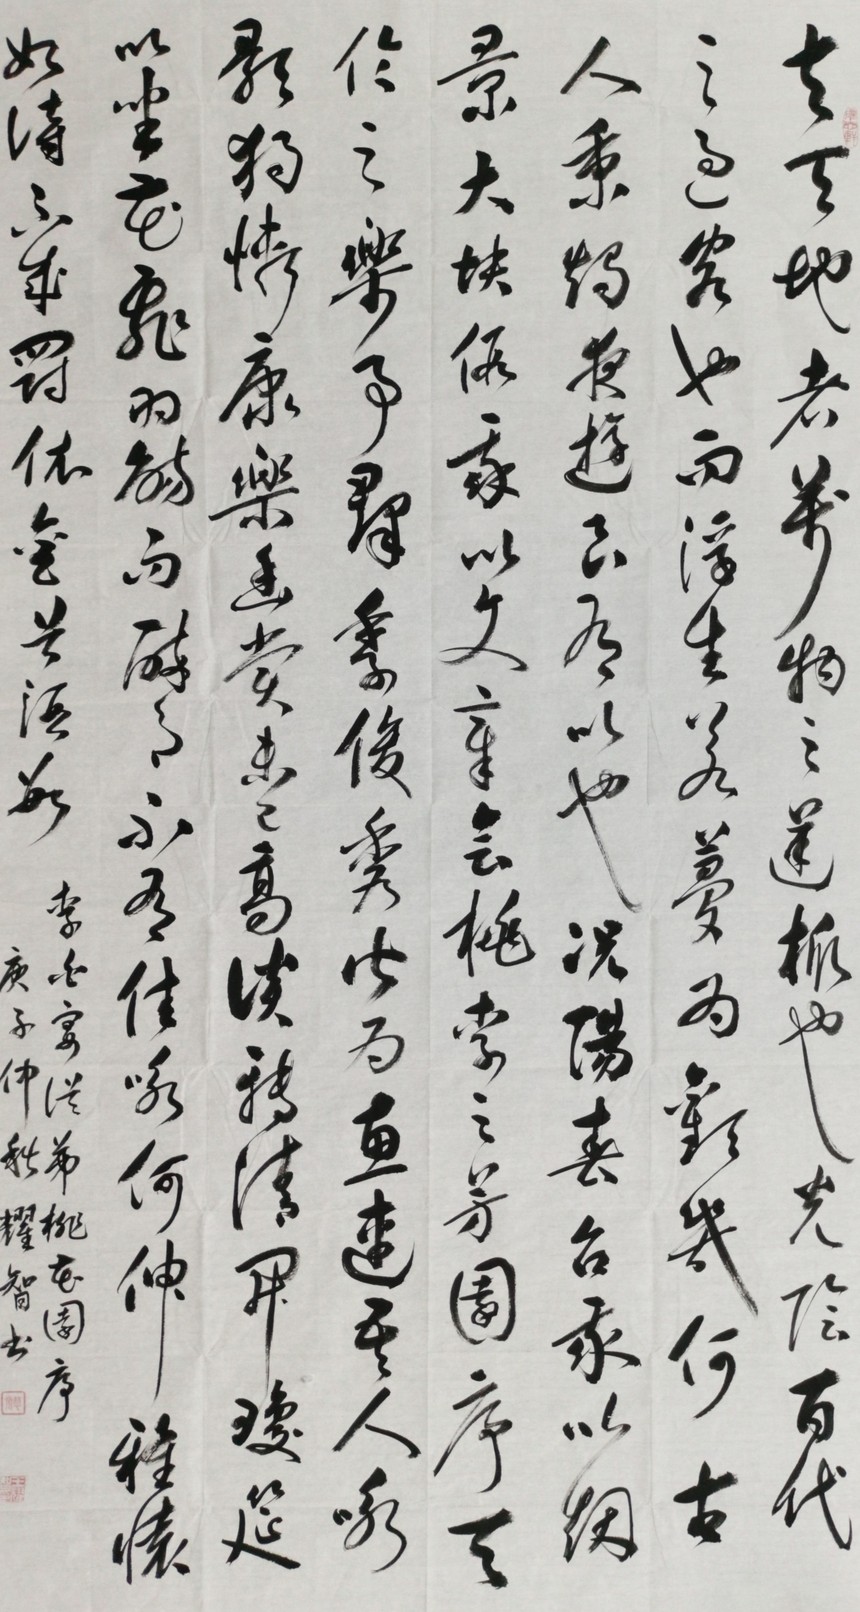 夫天地者萬物之逆旅也光陰百代
之過客也而浮生若夢為歡幾何古
人秉燭夜遊良有以也況陽春召我以烟
景大塊假我以文章會桃李之芳園序天
倫之樂事群季俊秀皆為惠連吾人詠
歌獨慚康樂幽賞未已高談轉清開瓊筵
以坐花飛羽觴而醉月不有佳咏何伸雅懷
如詩不成罰依金谷酒數
李白宴從弟桃花園序
庚子仲秋耀智書